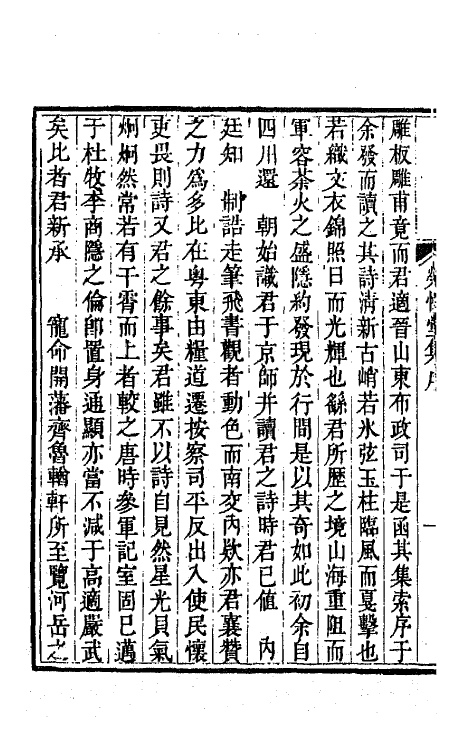 雕板雕甫竟而君適晉山東布政司于是函其集索序于
余發而讀之其詩清新古峭若氷弦玉柱臨風而戛擊也
若織文衣錦照日而光輝也繇君所歷之境山海重阻而
軍容荼火之盛隱約發現於行間是以其奇如此初余自
四川還　朝始識君于京師并讀君之詩時君已值　內
廷知　制誥走筆飛書觀者動色而南交內欵亦君襄贊
之力爲多比在粤東由糧道遷按察司平反出入使民懷
吏畏則詩又君之餘事矣君雖不以詩自見然星光貝氣
炯炯然常若有干霄而上者較之唐時參軍記室固已邁
于杜牧李商隱之倫卽置身通顯亦當不減于高適嚴武
矣比者君新承　寵命開藩齊魯輶軒所至覽河岳之
集序
一